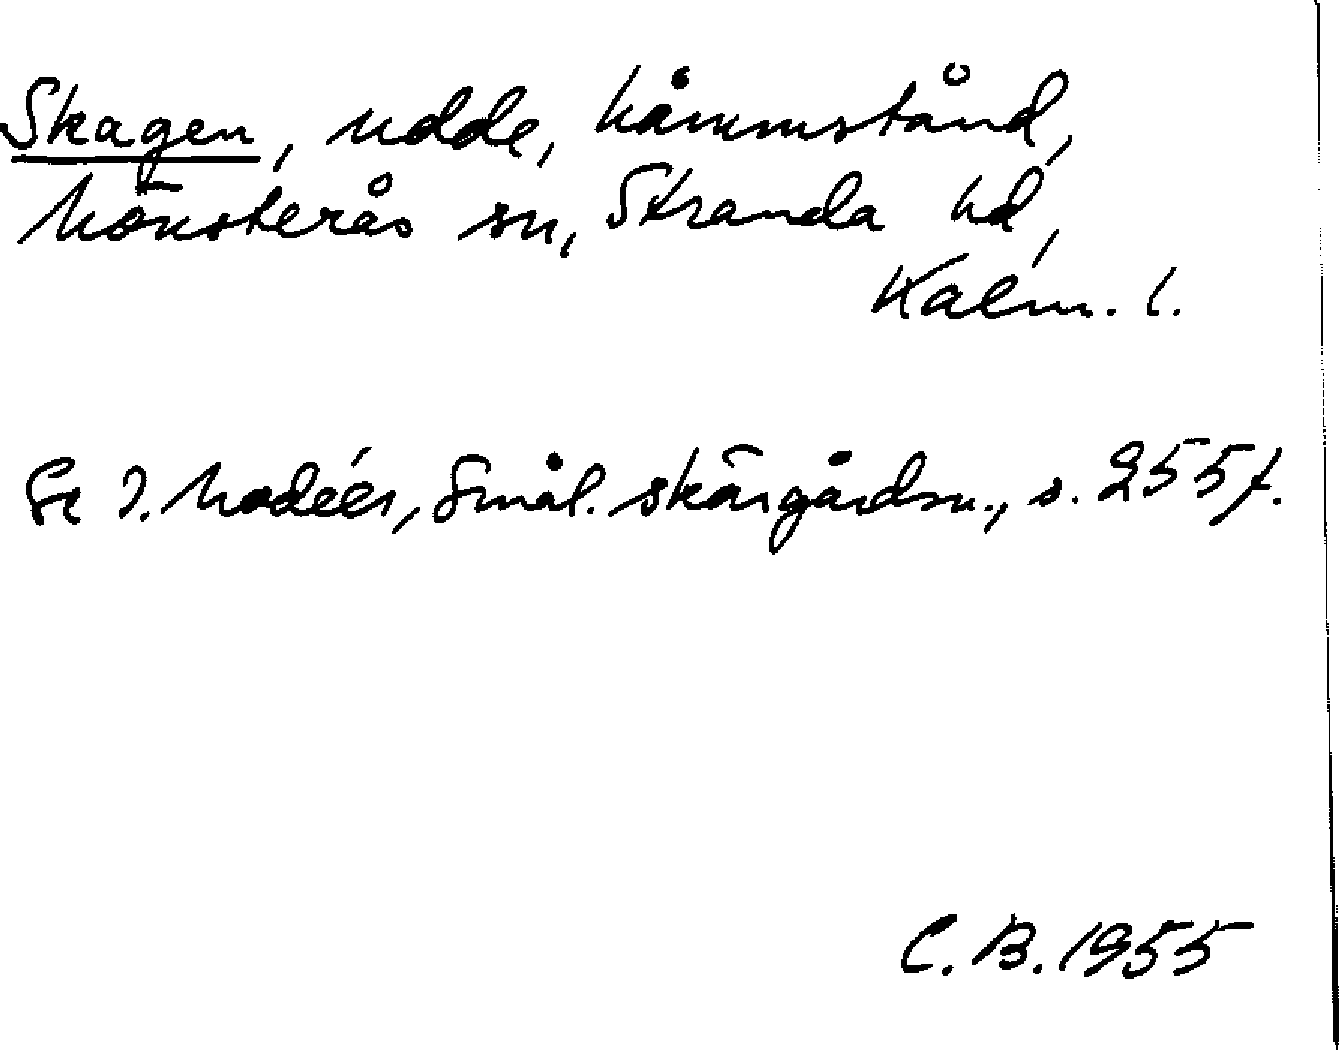 Skagen, udde, Nåmmstånd,
Mönsterås sn, Stranda hd,
Kalm. l.
Se I. Modéer, Smål. skärgårdsn., s. 255 f.
C. B. 1955